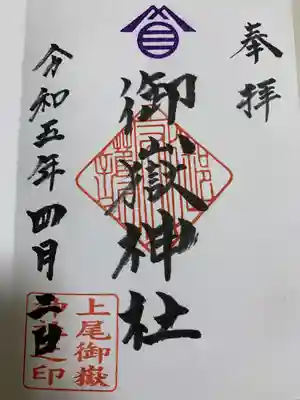 奉拝
御嶽神社
令和五年四月二日
上尾御嶽